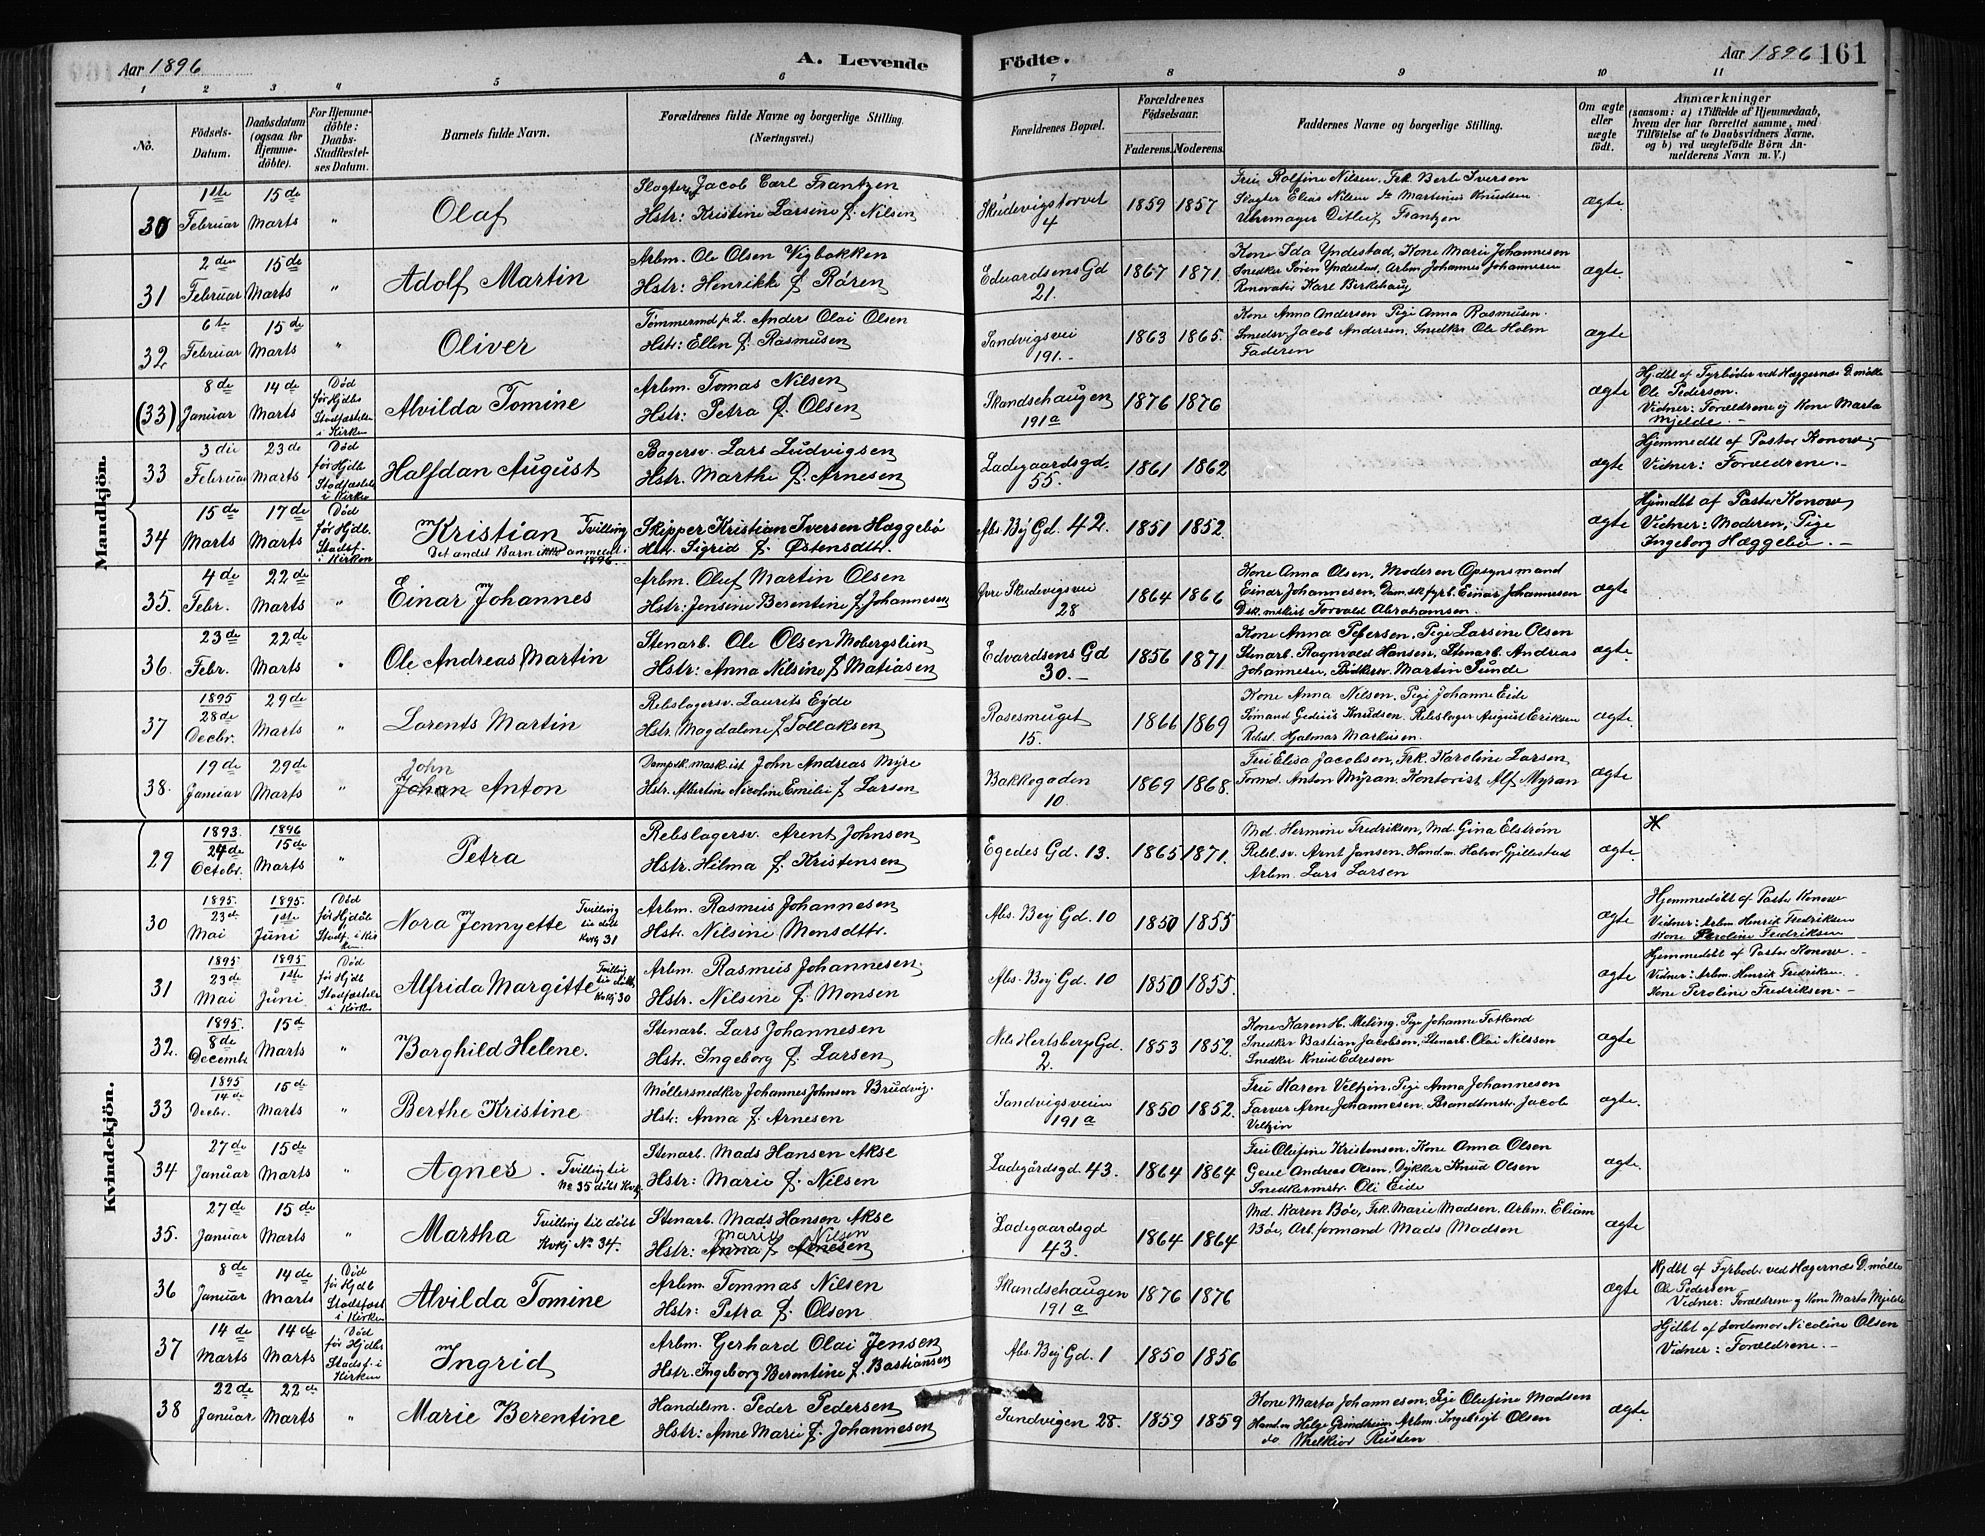 Aar 1896
A. Levende
Födte.
Aar 1896
161
1 2 3 4 5 6 7 8 9 10 11
No.
Födsels-
Datum.
Daabsdatum
(ogsaa for
Hjemme-
döbte).
For Hjemme-
döbte:
Daabs-
Stadfæstel-
ses Datum.
Barnets fulde Navn.
Forældrenes fulde Navne og borgerlige Stilling.
(Næringsvei.)
Forældrenes Bopæl.
Forældrenes
Födselsaar.
Faderens. Moderens.
Faddernes Navne og borgerlige Stilling.
Om ægte
eller
uægte
födt.
Anmærkninger
(saasom: a) i Tilfælde af Hjemmedaab,
hvem der har forrettet samme, med
Tilföielse af to Daabsvidners Navne,
og b) ved uægtefödte Börn An-
melderens Navn m. V.)
Mandkjön.
30 1ste Februar 15de Marts " Olaf
Slagter Jacob Carl Frantzen
Hstr: Kristine Larsine f. Nilsen
Skudevigstorvet 4 1859 1857
Fru Rolfine Nilsen, Frk. Berte Iversen
Slagter Elias Nilsen do Martinus Knudsen
Uhrmager Ditlef Frantzen
ægte
31 2den Februar 15de Marts " Adolf Martin
Arbm. Ole Olsen Vigbakken
Hstr: Henrikke f. Rören
Edvardsens Gd 21. 1867 1871.
Kone Ida Yndestad, Kone Marie Johannesen
Snedker Sören Yndestad, Arbm Johannes Johannesen
Renovatör Karl Birkehaug
ægte
32 6te Februar 15de Marts " Oliver
Tömmermd p. L. Anders Olai Olsen
Hstr: Ellen f. Rasmusen
Sandvigsvei 191.- 1863 1865.
Kone Anna Andersen Pige Anna Rasmusen.
Smedsv. Jacob Andersen, Snedker Ole Holm
Faderen
ægte
(33) 8de Januar 14de Marts Död før Hjdbs Stadfæstels- i Kirken
Alvilda Tomine
Arbm. Tomas Nilsen
Hstr: Petra f. Olsen
Skandsehaugen 191a 1876 1876
ægte
Hj.dbt af Fyrböder ved Hæggernæs D.mölle
Ole Pedersen.
Vidner: Forældrene og Kone Marta
Mjelde.-
33 3die Februar 23de Marts Död før Hjdb Stadfæstels i Kirken
Halfdan August
Bagersv. Lars Ludvigsen
Hstr. Marthe f. Arnesen
Ladegaardsgd. 55. 1861 1862
ægte
Hjemmedbt af Pastor Konow-
Vidner: Forældrene.-
34 15de Marts 17de Marts Död før Hjdb. Stadsf. i Kirken
Kristian Tvilling
Det andet Barn ikke anmeldt i 1896.
Skipper Kristian Iversen Hæggebö
Hstr. Sigrid f. Østensdtr.
Abs. Bej Gd. 42. 1851 1852.
ægte
Hjmdbt af Pastor Konow
Vidner: Moderen, Pige
Ingeborg Hæggebö.-
35. 4de Febr. 22de Marts " Einar Johannes
Arbm. Oluf Martin Olsen
Hstr: Jensine Berentine f. Johannesen
Øvre Skudevigsvei 28 1864 1866
Kone Anna Olsen, Moderen Opsynsmand
Einar Johannesen, Dam.sk.fyrb. Einar Johannesen
Dsk. mskist Torvald Abrahamsen.
ægte
36. 23de Febr. 22de Marts " Ole Andreas Martin
Stenarb. Ole Olsen Mobergslien
Hstr: Anna Nilsine f. Matiasen
Edvardsens Gd 30.- 1856 1871.
Kone Anna Petersen, Pige Larsine Olsen
Stenarb. Ragnvald Hansen, Stenarb. Andreas
Johannesen, Bödkersv. Martin Sunde
ægte.
37 1895 28de Decbr. 29de Marts " Lorents Martin
Rebslagersv. Laurits Eyde
Hstr. Magdalene f. Tollaksen
Rosesmuget 15. 1866 1869
Kone Anna Nilsen, Pige Johanne Eide
Sömand Gedius Knudsen, Rebslager August Eriksen
Rebsl. Hjalmar Markusen.
ægte
38. 19de Januar 29de Marts " John Johan Anton
Dampsk.maskist John Andreas Myre
Hstr. Albertine Nicoline Emilie f. Larsen
Bakkegaden 10. 1869 1868.
Fru Elisa Jacobsen, Frk. Karoline Larsen
Formd. Anton Myran, Kontorist Alf Myran
ægte
Kvindekjön.
29 1893. 24de Octobr. 1896 15de Marts " Petra
Rebslagersv. Arent Johnsen
Hstr. Hilma f. Kristensen
Egedes Gd. 13. 1865 1871.
Md. Hermine Fredriksen, Md. Gina Elström
Rebsl.sv. Arnt Jansen, Hand.m. Halvor Gjillestad
Arbm. Lars Larsen
ægte.
30 1895. 23de Mai 1895. 1ste Juni Död før Hjdöb Stadf. i Kirken.
Nora Jennyette Tvilling til döbt Kvkj 31
Arbm. Rasmus Johannesen
Hstr. Nilsine Monsdttr.
Abs. Bej Gd. 10 1850 1855
ægte
Hjemmedöbt af Pastor Konow
Vidner: Arbm Henrik Fredriksen
Kone Peroline Fredriksen
31 1895 23de Mai 1895 1ste Juni Död før Hjdb Stadfæstels i Kirken
Alfrida Margitte Tvilling til döbt Kvkj 30
Arbm. Rasmus Johannesen.
Hstr. Nilsine f. Monsen
Abs. Bej Gd 10 1850 1855.
ægte
Hjemmedöbt af Pastor Konow.-
Vidner: Arbm. Henrik Fredriksen.
Kone Peroline Fredriksen.-
32. 1895. 8de Decembr 15de Marts " Borghild Helene.
Stenarb. Lars Johannesen
Hstr. Ingeborg f. Larsen
Nils Hertsberg Gd. 2. 1853 1852.
Kone Karen H. Meling. Pige Johanne Fotland
Snedker Bastian Jacobsen, Stenarb. Olai Nilssen
Snedker Knud Edresen
ægte
33 1895 14de Decbr. 15de Marts " Berthe Kristine
Möllersnedker Johannes Johnsen Brudvig.
Hstr: Anna f. Arnesen
Sandvigsveien 191a 1850 1852.
Fru Karen Veltzin, Pige Anna Johannesen
Farver Arne Johannesen. Brandtmstr. Jacob
Veltzin
ægte.
34 27de Januar 15de Marts " Agnes. Tvilling til No 35 döbt Kvkj
Stenarb. Mads Hansen Akse
Hstr: Marie f. Nilsen
Ladegårdsgd. 43. 1864 1864
Fru Olufine Kristensen, Kone Anna Olsen
Andreas Olsen, Dykker Knud Olsen
Snedkermstr. Oli Eide
ægte.
35. 27de Januar 15de Marts " Martha Tvilling til döbt Kvkj No. 34.
Stenarb. Mads Hansen Akse
Marie Nilsen
Hstr: Anna f. Arnesen
Ladegaardsgd 43. 1864 1864
Md. Karen Böe, Frk. Marie Madsen, Arbm. Eliam
Böe, Arb.formand Mads Madsen
ægte
36 8de Januar 14de Marts Död før Hjdb Stadsfæst i Kirken
Alvilda Tomine
Arbm. Tommas Nilsen
Hstr: Petra f. Olsen
Skandsehaugen 191a 1876 1876
ægte
Hjdbt af Fyrböd. ved Hægernæs D.mölle
Ole Pedersen
Vidner: Forældrene og Kone Marta Mjelde
37 14de Marts 14de Marts Död før Hjdbs Stadsf. i Kirken
Ingrid
Arbm. Gerhard Olai Jensen
Hstr. Ingeborg Berentine f. Bastiansen
Abs. Bej Gd. 1 1850 1856
Hjdbt af Jordemor Nicoline Olsen
Vidner: Forældrene.-
38 22de Januar 22de Marts " Marie Berentine
Handelsm. Peder Pedersen
Hstr: Anne Marie f. Johannesen
Sandvigen 28. 1859 1859
Kone Marta Johannesen, Pige Olufine Madsen
Hand.m Helge Grindheim, Arbm. Ingebrigt Olsen
do Melkior Rusten
ægte.